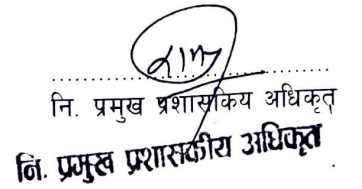 नि. प्रमुख प्रशासकिय अधिकृत
नि. प्रमुख प्रशासकीय अधिकृत